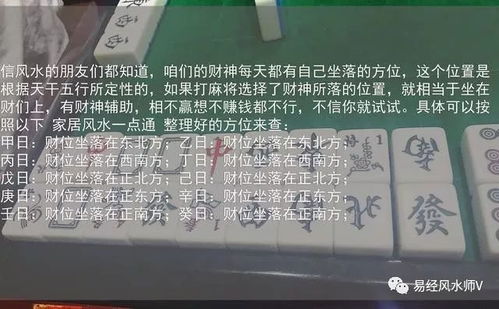 信风水的朋友们都知道，咱们的财神每天都有自己坐落的方位，这个位置是
根据天干五行所定性的，如果打麻将选择了财神所落的位置，就相当于坐在
财们上，有财神辅助，相不赢想不赚钱都不行，不信你就试试。具体可以按
照以下 家居风水一点通 整理好的方位来查：
甲日：财位坐落在东北方；乙日：财位坐落在东北方；
丙日：财位坐落在西南方；丁日：财位坐落在西南方；
戊日：财位坐落在正北方；己日：财位坐落在正北方；
庚日：财位坐落在正东方；辛日：财位坐落在正东方；
壬日：财位坐落在正南方；癸日：财位坐落在正南方；
北 發
易经风水师V